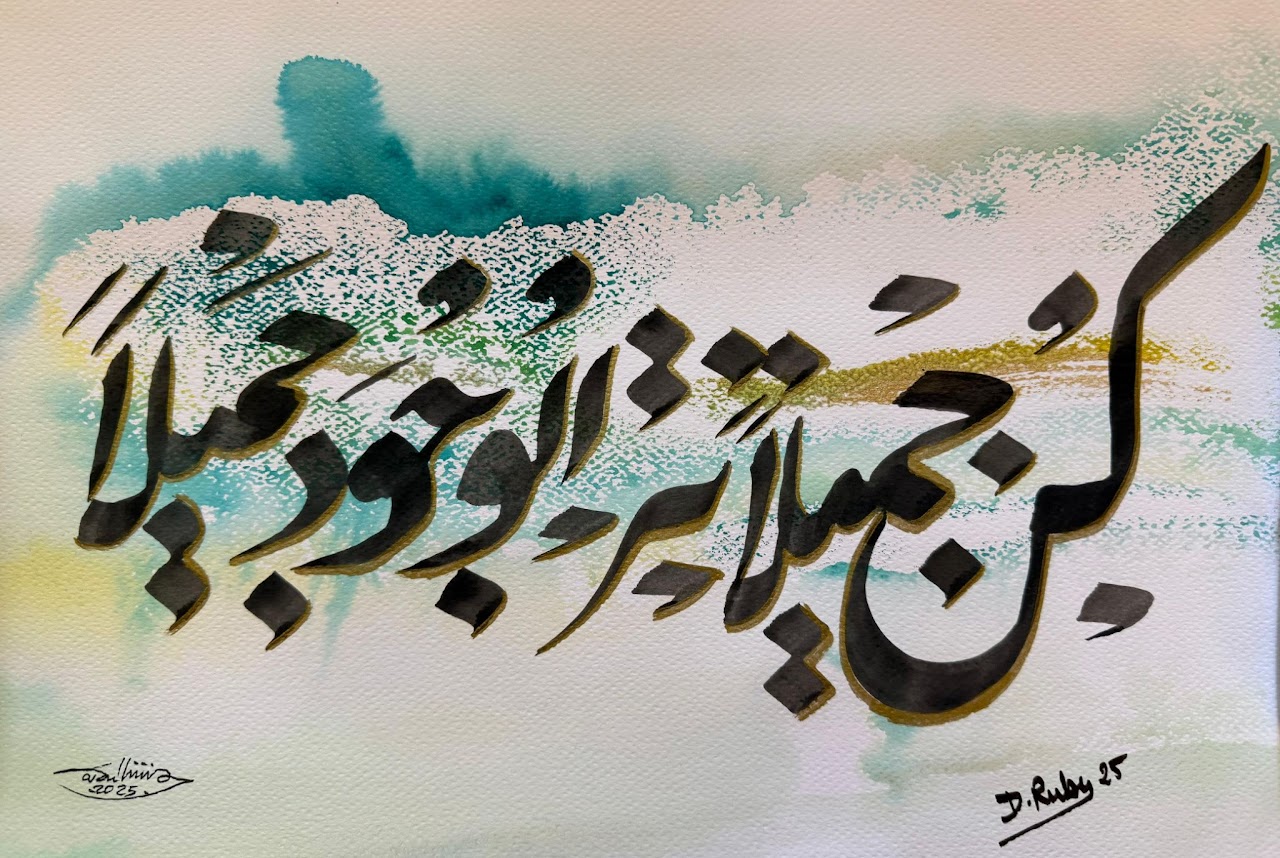 كُن جَميلاً تر الوُجُود جَميلاً
2025
D. Ruby 25